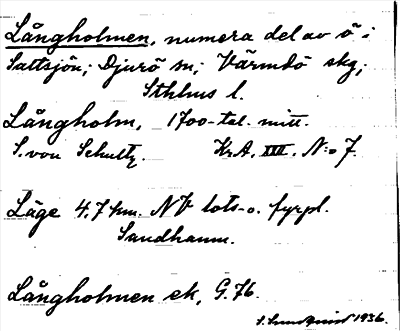 Långholmen, numera del av ö i
Saltsjön; Djurö sn; Värmdö skg;
Sthlms l.
Långholm, 1700-tal. mitt.
S. von Schultz. Kr.A. XVII. N:o 7.
Läge 4.7 km. NV lots- o. fyrpl.
Sandhamn.
Långholmen ek, G.76.
S. 1936.